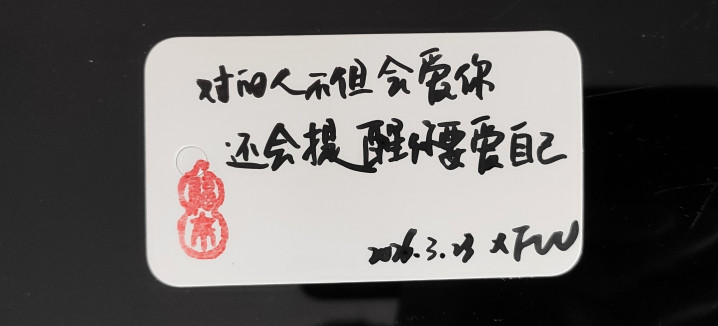 对的人不但会爱你
还会提醒你要爱自己
2026.3.23 XFW